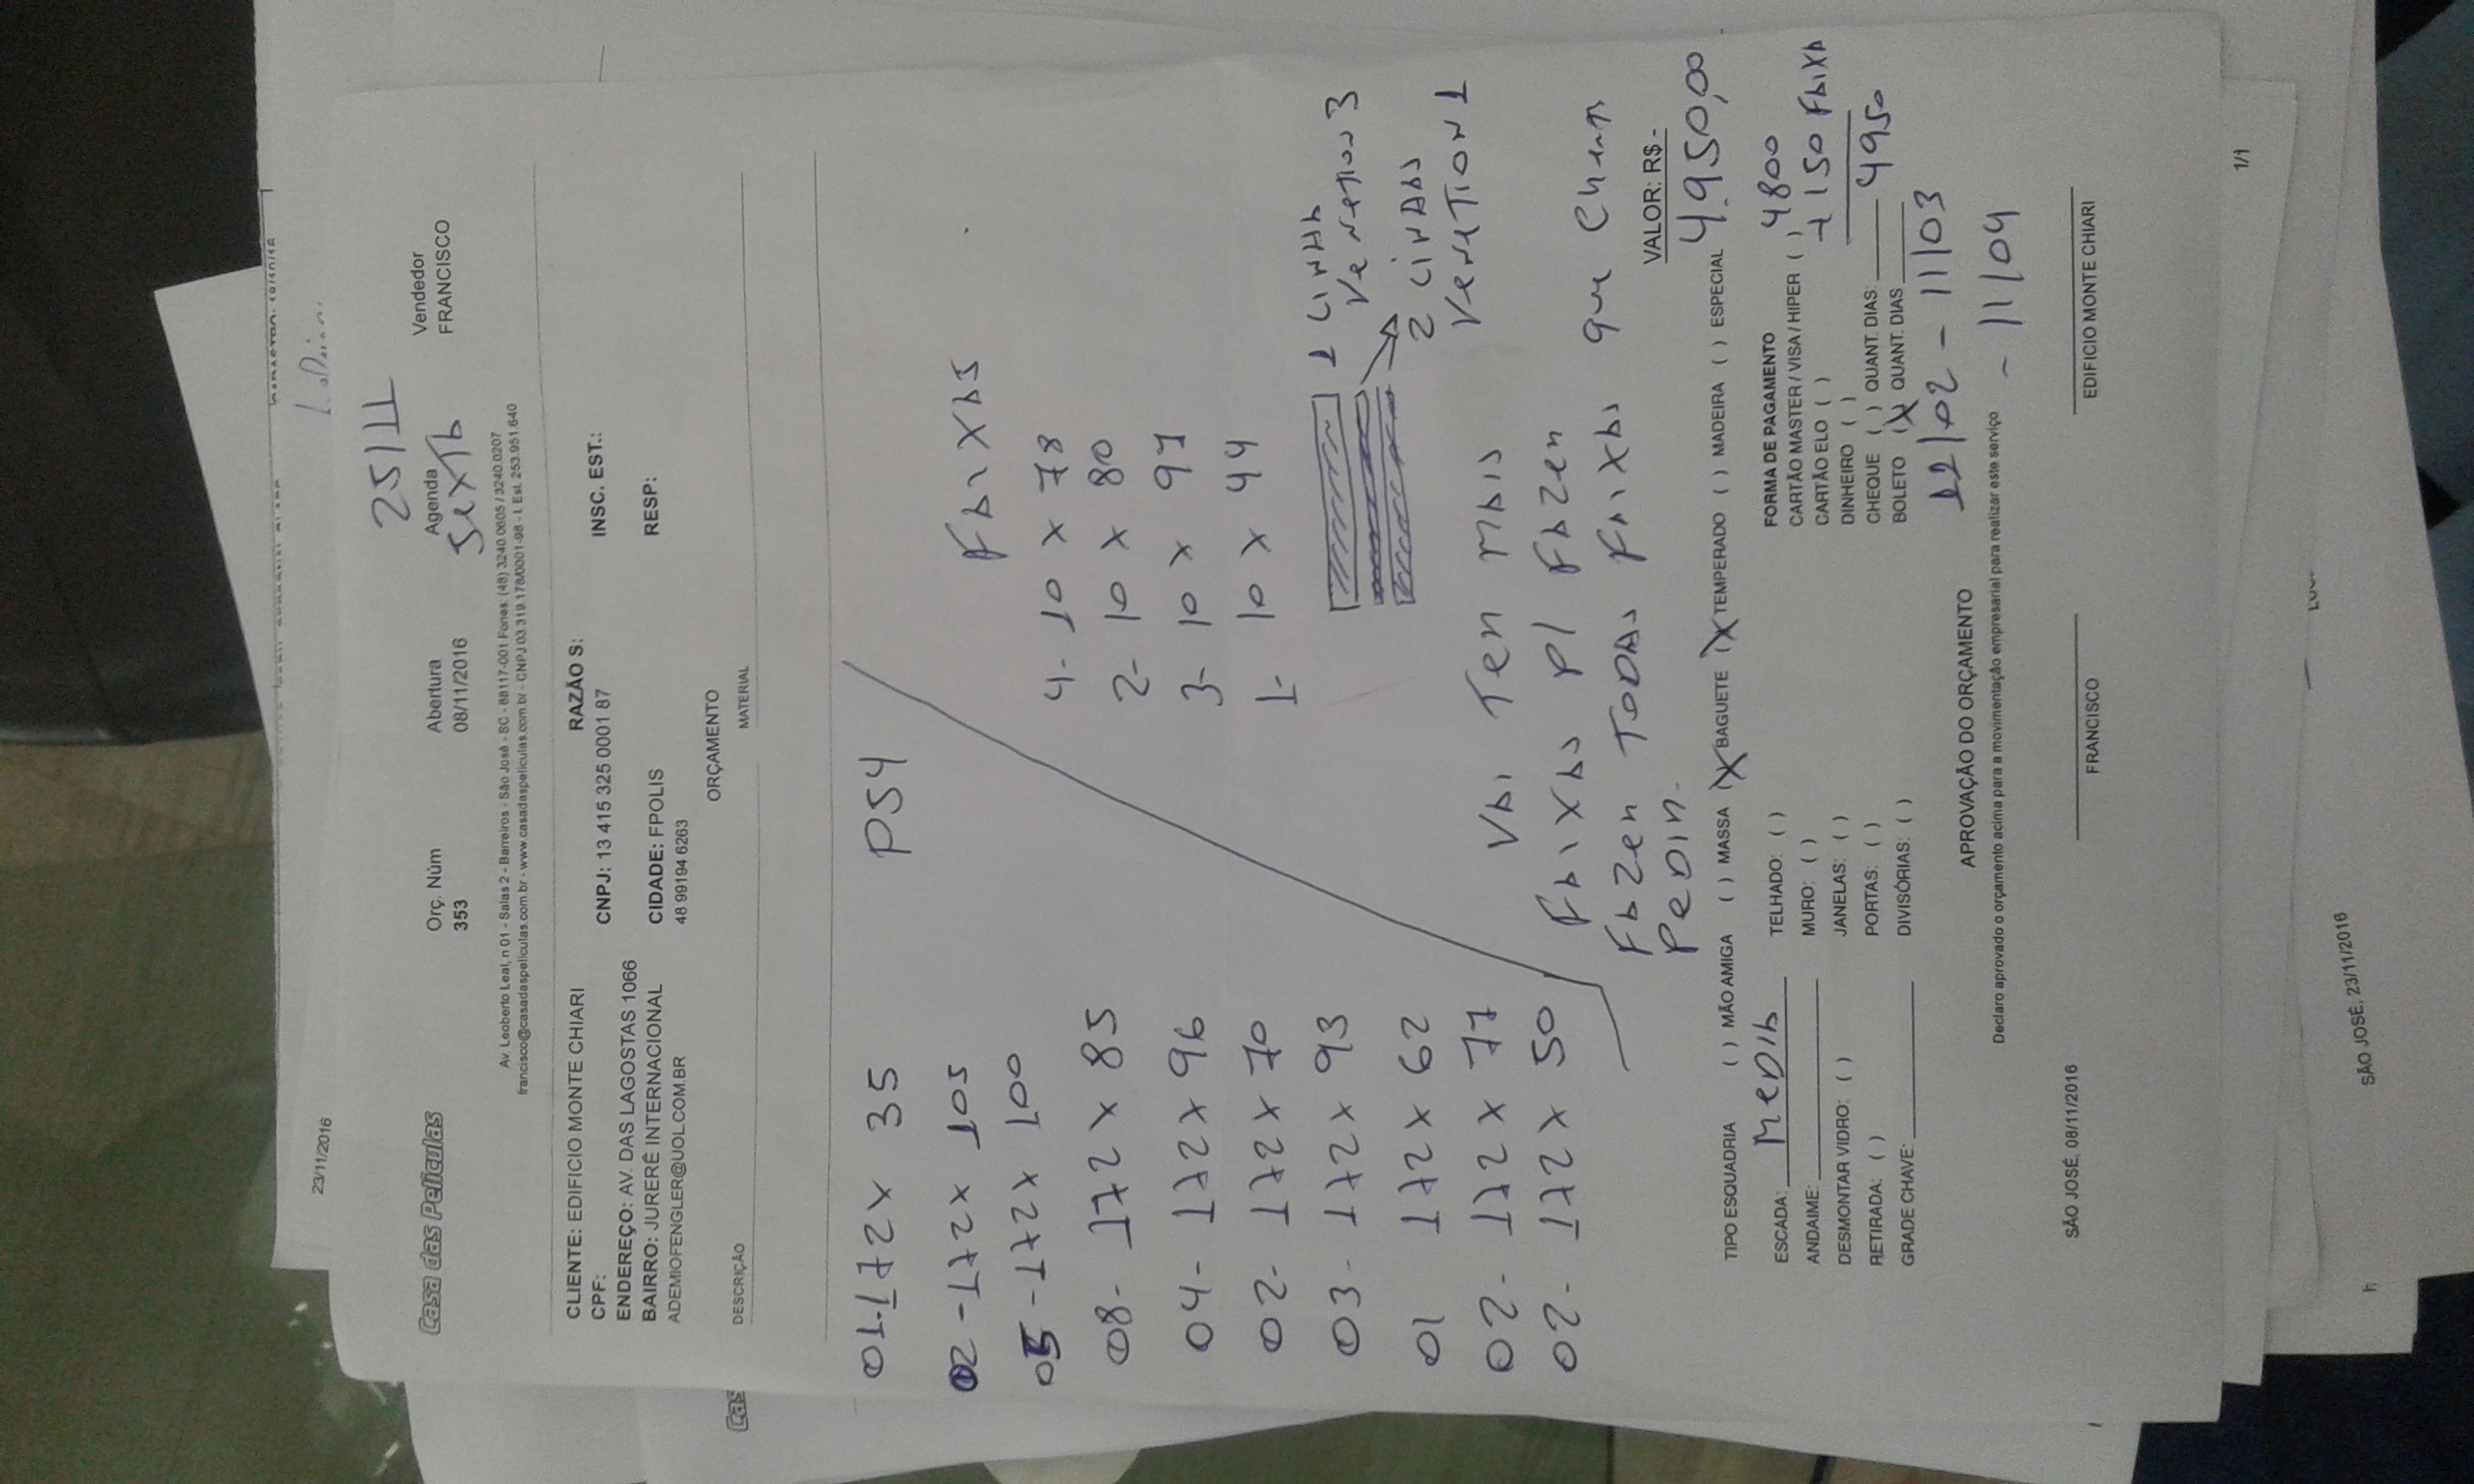 23/11/2016
25/11
Casa das Películas
Orç. Núm
353
Abertura
08/11/2016
Agenda
Sexta
Vendedor
FRANCISCO
Av. Leoberto Leal, n 01 - Salas 2 - Barreiros - São José - SC - 88117-001 Fones: (48) 3240.0605 / 3240.0207
francisco@casadaspeliculas.com.br - www.casadaspeliculas.com.br - CNPJ 03.319.178/0001-98 - I. Est. 253.951.640
CLIENTE: EDIFICIO MONTE CHIARI RAZÃO S:
CPF: CNPJ: 13 415 325 0001 87 INSC. EST.:
ENDEREÇO: AV. DAS LAGOSTAS 1066
BAIRRO: JURERÊ INTERNACIONAL CIDADE: FPOLIS RESP:
ADEMIOFENGLER@UOL.COM.BR 48 99194 6263
ORÇAMENTO
DESCRIÇÃO MATERIAL
01-172x 35 PS4
02-172x 105 FAIXAS
05-172x 100
08- 172x 85 4- 10 x 78
04- 172x 96 2- 10 x 80
02- 172x 70 3- 10 x 91
03- 172x 93 1- 10 x 44
01 172x 62
02- 172x 77
02- 172x 50
1 LINHA
VENETION 3
2 LINHAS
VENETION 1
VAI TER MAIS
FAIXAS P/ FAZER
FAZER TODAS FAIXAS que
PEDIR.
VALOR: R$ -
4.950,00
TIPO ESQUADRIA ( ) MÃO AMIGA ( ) MASSA (X BAGUETE (X TEMPERADO ( ) MADEIRA ( ) ESPECIAL
ESCADA: MEDIA TELHADO: ( )
ANDAIME: MURO: ( )
DESMONTAR VIDRO: ( ) JANELAS: ( )
RETIRADA: ( ) PORTAS: ( )
GRADE CHAVE: DIVISÓRIAS: ( )
FORMA DE PAGAMENTO
CARTÃO MASTER / VISA / HIPER ( )
CARTÃO ELO ( )
DINHEIRO ( )
CHEQUE ( ) QUANT. DIAS:
BOLETO (X QUANT. DIAS
4800
+ 150 FAIXA
4950
12/02 - 11/03
- 11/04
APROVAÇÃO DO ORÇAMENTO
Declaro aprovado o orçamento acima para a movimentação empresarial para realizar este serviço
SÃO JOSÉ, 08/11/2016
FRANCISCO
EDIFICIO MONTE CHIARI
1/1
SÃO JOSÉ, 23/11/2016